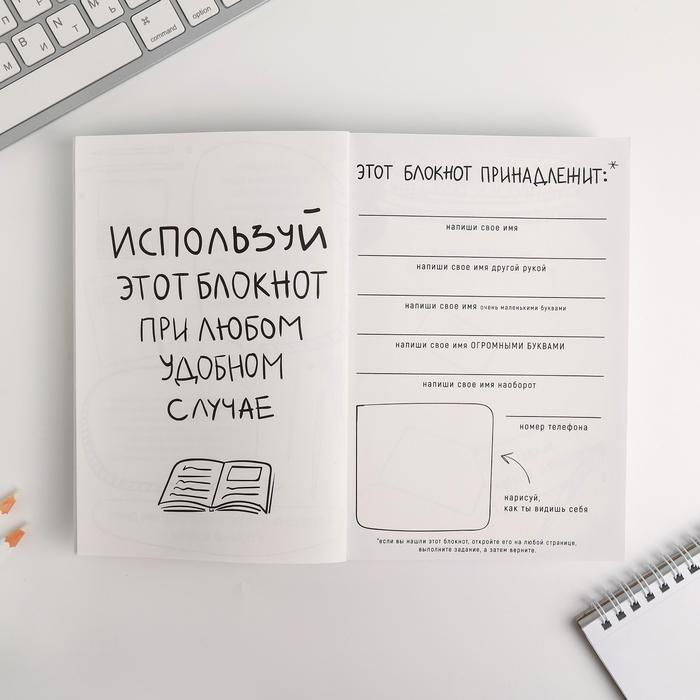 command
option
ИСПОЛЬЗУЙ
ЭТОТ БЛОКНОТ
ПРИ ЛЮБОМ
УДОБНОМ
СЛУЧАЕ
ЭТОТ БЛОКНОТ ПРИНАДЛЕЖИТ:*
напиши свое имя
напиши свое имя другой рукой
напиши свое имя очень маленькими буквами
напиши свое имя ОГРОМНЫМИ БУКВАМИ
напиши свое имя наоборот
номер телефона
нарисуй,
как ты видишь себя
*если вы нашли этот блокнот, откройте его на любой странице,
выполните задание, а затем верните.